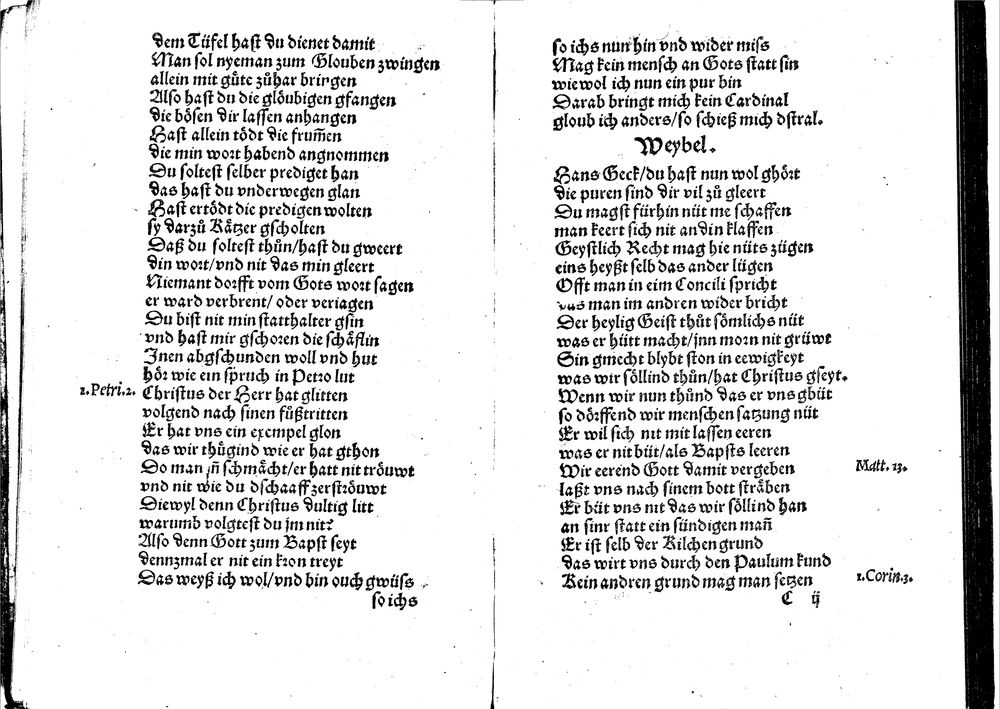 dem Tüfel hast du dienet damit
Man sol nyeman zum Glouben zwingen
allein mit guͤte zuͦhar bringen
Also hast du die gloͤubigen gfangen
die boͤsen dir lassen anhangen
Hast allein toͤdt die frum̃en
die min wort habend angnommen
Du soltest selber prediget han
das hast du vnderwegen glan
Hast ertoͤdt die predigen wolten
sy darzuͦ Kaͤtzer gscholten
Daß du soltest thuͦn/hast du gweert
din wort/vnd nit das min gleert
Niemant dorfft vom Gots wort sagen
er ward verbrent/ oder veriagen
Du bist nit min statthalter gsin
vnd hast mir gschoren die schaͤflin
Inen abgschunden woll vnd hut
hoͤr wie ein spruch in Petro lut
1.Petri.2. Christus der Herr hat glitten
volgend nach sinen fuͦßtritten
Er hat vns ein exempel glon
das wir thuͤgind wie er hat gthon
Do man jn̄ schmaͤcht/er hatt nit troͤuwt
vnd nit wie du dschaaff zerstroͤuwt
Diewyl denn Christus dultig litt
warumb volgtest du jm nit?
Also denn Gott zum Bapst seyt
dennzmal er nit ein kron treyt
Das weyß ich wol/vnd bin ouch gwüss
so ichs
so ichs nun hin vnd wider miss
Mag kein mensch an Gots statt sin
wiewol ich nun ein pur bin
Darab bringt mich kein Cardinal
gloub ich anders/so schieß mich dstral.
Weybel.
Hans Geck/du hast nun wol ghoͤrt
die puren sind dir vil zuͦ gleert
Du magst fürhin nüt me schaffen
man keert sich nit an din klaffen
Geystlich Recht mag hie nüts zügen
eins heyßt selb das ander lügen
Offt man in eim Concili spricht
das man im andren wider bricht
Der heylig Geist thuͦt soͤmlichs nüt
was er hütt macht/jnn morn nit grüwt
Sin gmecht blybt ston in eewigkeyt
was wir soͤllind thuͦn/hat Christus gseyt.
Wenn wir nun thuͦnd das er vns gbüt
so doͤrffend wir menschen satzung nüt
Er wil sich nit mit lassen eeren
was er nit büt/als Bapsts leeren
Wir eerend Gott damit vergeben Matt. 15.
laßt vns nach sinem bott straͤben
Er büt vns nit das wir soͤllind han
an sinr statt ein sündigen man̄
Er ist selb der Kilchen grund
das wirt vns durch den Paulum kund
Kein andren grund mag man setzen 1.Corin.3.
C ij